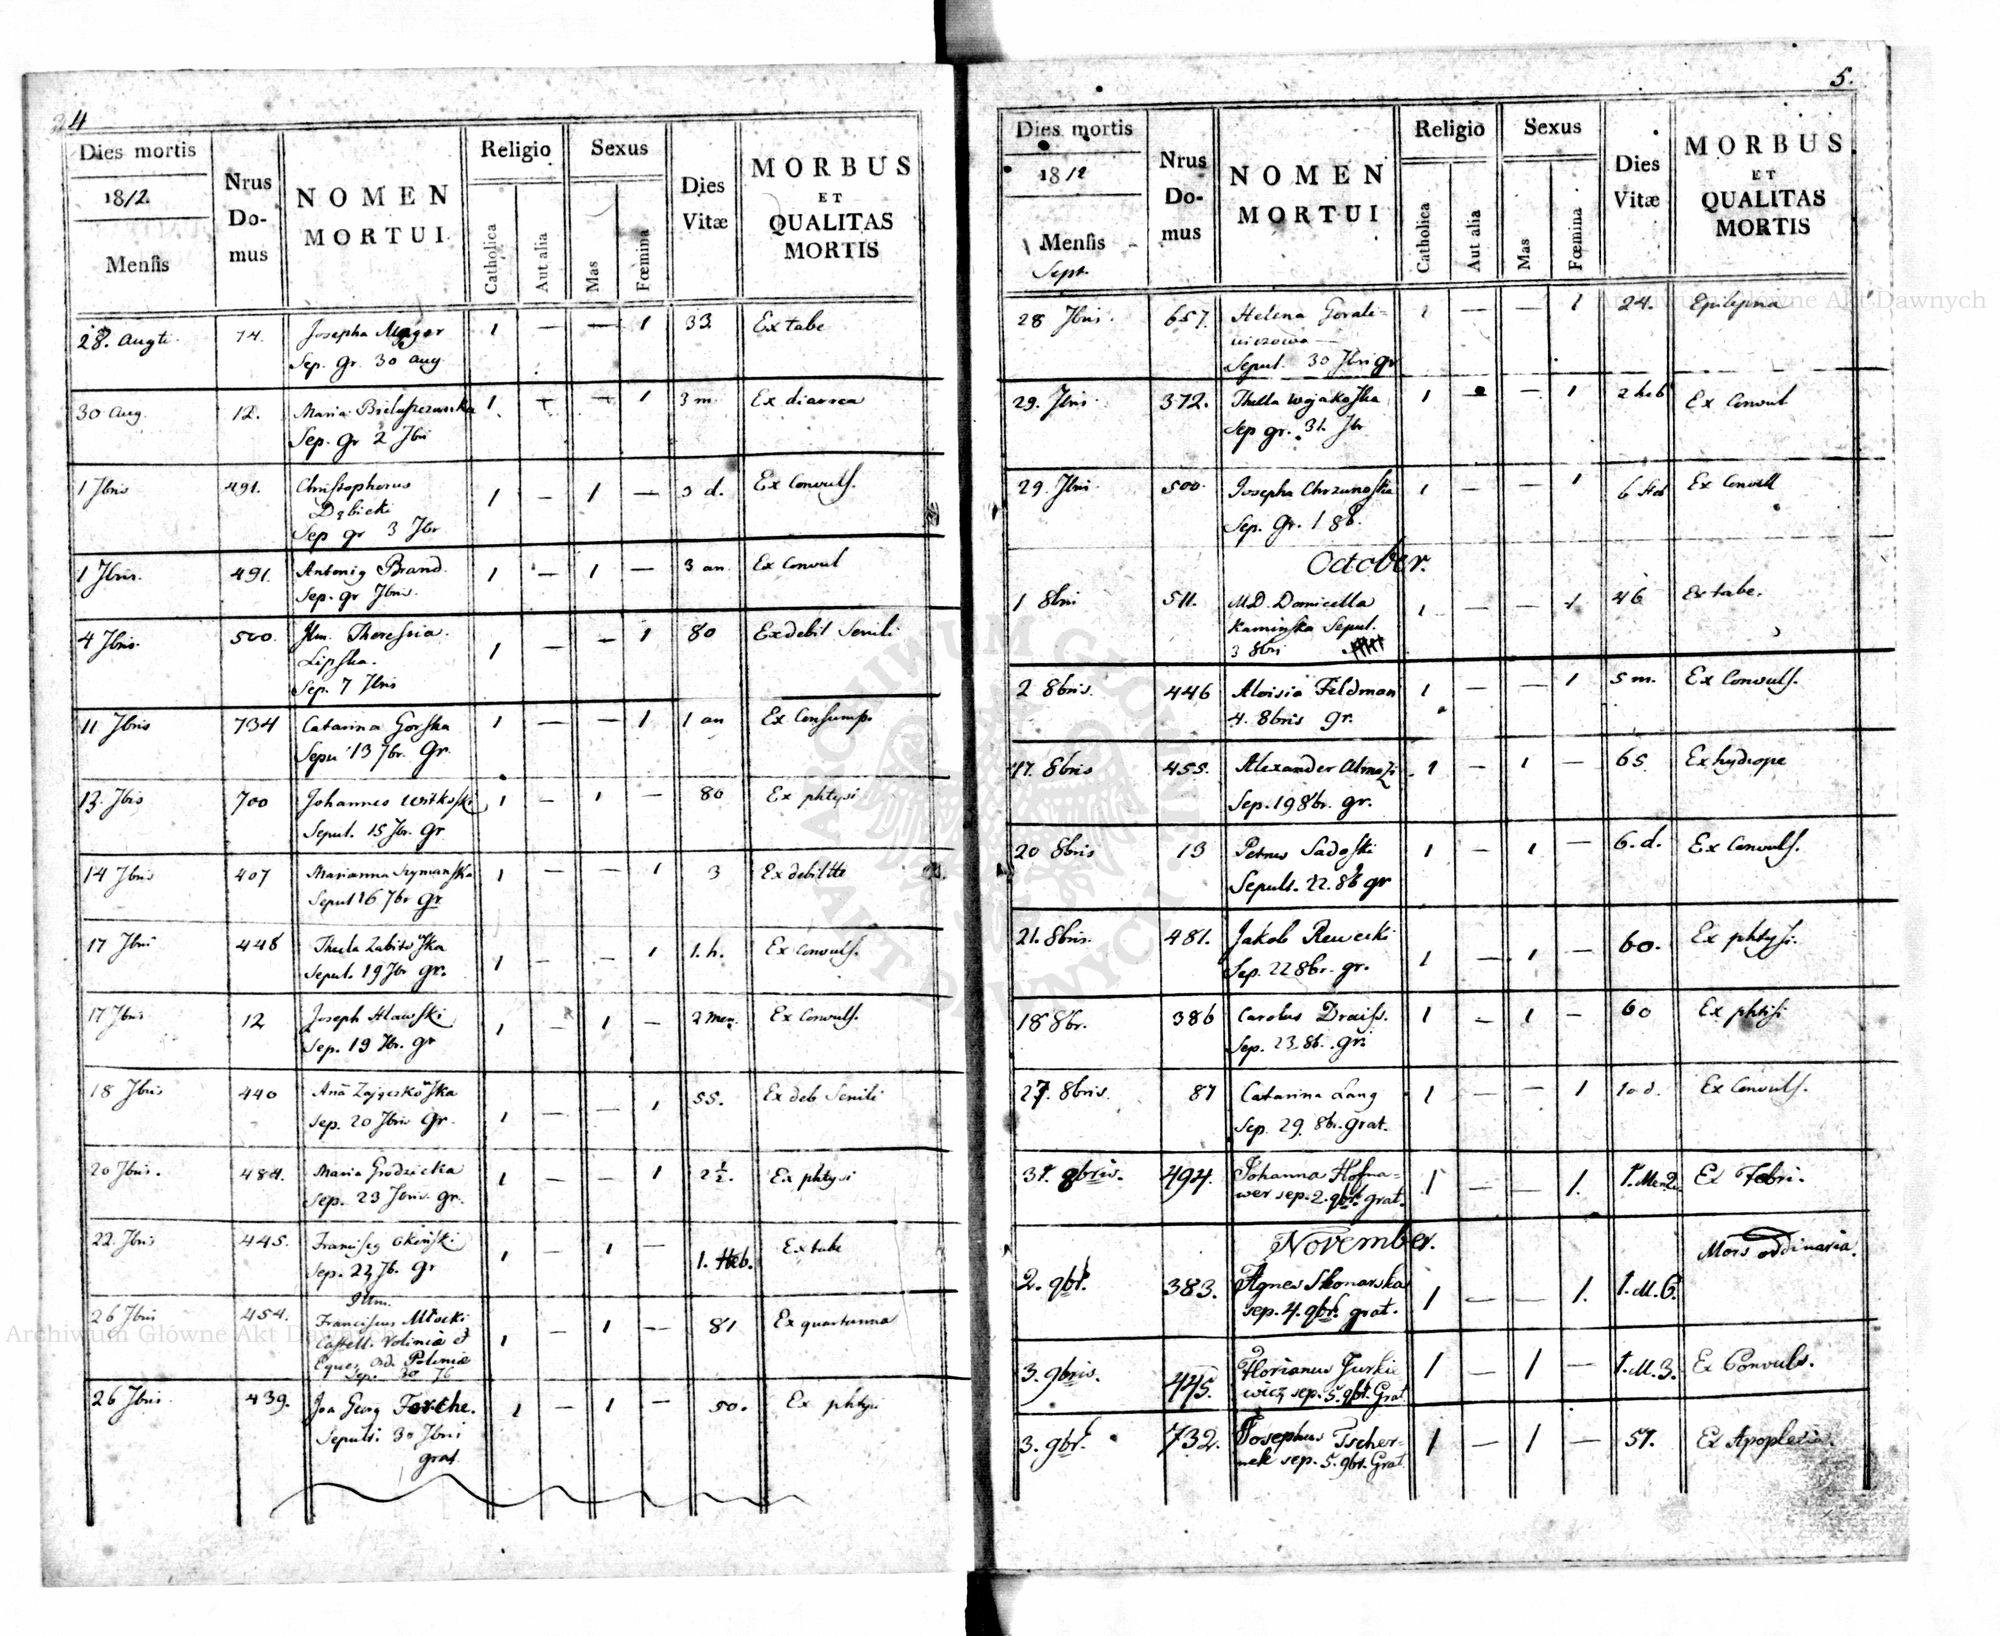 4
Dies mortis
1812.
Mensis
Nrus Do-mus
NOMEN MORTUI.
Religio
Catholica
Aut alia
Sexus
Mas
Fœmina
Dies Vitæ
MORBUS ET QUALITAS MORTIS
28. Augti 74. Josepha 1 — — 1 33. Ex tabe
Sep. gr. 30 aug
30 aug. 12. Maria 1 — — 1 3 m. Ex diarrea
Sep. gr 2 7bri
1 7bris 491. Christophorus 1 — 1 — 3 d. Ex Convuls.
Dąbicki
Sep gr 3 7br
1 7bris. 491. Antonig Brand. 1 — 1 — 3 an. Ex Convul
Sep. gr 7bris.
4 7bris. 500. Theressia 1 — — 1 80 Ex debil Senili
Lipska.
Sep. 7 7bris
11 7bris 734 Catarina Gorska 1 — — 1 1 an Ex Consump
Sepu 13 7br. Gr.
13. 7bris 700 Johannes Witkoski 1 — 1 — 80 Ex phtysi
Sepul. 15 7br. gr
14 7bris 407 Marianna Szymanska 1 — — 1 3 Ex debilitte
Sepul 16 7br gr
17 7bris 448 Thecla Zabitoska 1 — — 1 1. h. Ex Convuls.
Sepul. 19 7br gr.
17 7bris 12 Joseph 1 — 1 — 2 men. Ex Convuls.
Sep. 19 7br. gr
18 7bris 440 Anā Zajączkowska 1 — — 1 55. Ex deb Senili
Sep. 20 7bris Gr.
20 7bris. 484. Maria Grodzicka 1 — — 1 2½. Ex phtysi
Sep. 23 7bris. gr.
22. 7bris 445. Francisg Okęnski 1 — 1 — 1. Heb. Ex tabe
Sep. 24 7b. gr
Illm.
26 7bris 454. Franciscus Młocki 1 — 1 — 81 Ex quartanna
Castell. Voliniæ &
Eques ord. Poloniæ
Sep. 30 7b
26 7bris. 439. Joa Georg Forche. 1 — 1 — 50. Ex phtysi
Sepuls: 30 7bris
grat
5.
Dies mortis
1812
Mensis
Sept.
Nrus Do-mus
NOMEN MORTUI
Religio
Catholica
Aut alia
Sexus
Mas
Fœmina
Dies Vitæ
MORBUS ET QUALITAS MORTIS
28 7bris. 657. Helena Gorali- 1 — — 1 24. Epilepsia
wiczowa —
Sepul. 30 7bris gr
29. 7bris 372. Thecla Wojakoska 1 — — 1 2 heb Ex Convul
Sep gr. 31. 7br
29. 7bris 500. Josepha Chrzanoska 1 — — 1 6 Heb Ex Convull
Sep. Gr. 1 8b.
October.
1 8bris 511. M.D. Domicella 1 — — 1 46 Ex tabe.
Kaminska Sepul.
3 8bri
2 8bris. 446 Aloisia Feldman 1 — — 1 5 m. Ex Convuls.
4. 8bris gr.
17. 8bris 455. Alexander 1 — 1 — 65 Ex hydrope
Sep. 19 8br. gr.
20 8bris 13 Petrus Sadoski 1 — 1 — 6. d. Ex Convuls.
Sepuls. 22. 8b gr
21. 8bris. 481. Jakob 1 — 1 — 60. Ex phtysi.
Sep. 22 8br. gr.
18 8br. 386 Carolus Draiss. 1 — 1 — 60 Ex phtisi
Sep. 23 8b. gr.
27. 8bris. 87 Catarina Lang 1 — — 1 10 d. Ex Convuls.
Sep. 29. 8br. grat.
31. 8bris. 494. Johanna Hofna- 1 — — 1. 1. Men 2. Ex Febri.
wer sep. 2. 9br. grat.
November.
2. 9br. 383. Agnes Skonarska 1 — — 1. 1. M. 6. Mors ordinaria.
sep. 4. 9br. grat.
3. 9bris. 445. Florianus Jurkie 1 — 1 — 1. M. 3. Ex Convuls.
wicz sep. 5. 9br. Grat
3. 9br. 732. Josephus Tscher- 1 — 1 — 57. Ex Apoplexia.
nek sep. 5. 9br. Grat.
Archiwum Główne Akt Dawnych
Archiwum Główne Akt Dawnych
ARCHIWUM GŁÓWNE AKT DAWNYCH